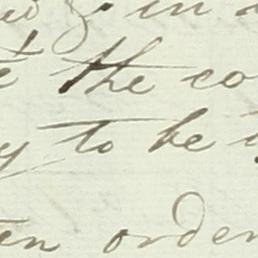 in
the co
y to be
en order